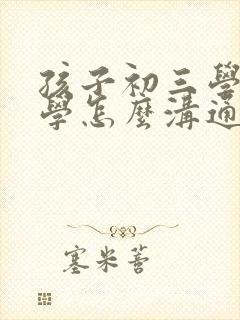 孩子初三學
學怎麼溝通
塞米蒈